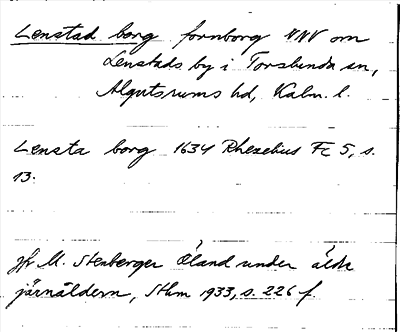 Lenstad borg fornborg VNV om
Lenstads by i Torslunda sn,
Algutsrums hd, Kalm. l.
Lensta borg 1634 Rhezelius Fc 5, s.
13.
Jfr M. Stenberger Öland under äldre
järnåldern, Sthm 1933, s. 226 f.